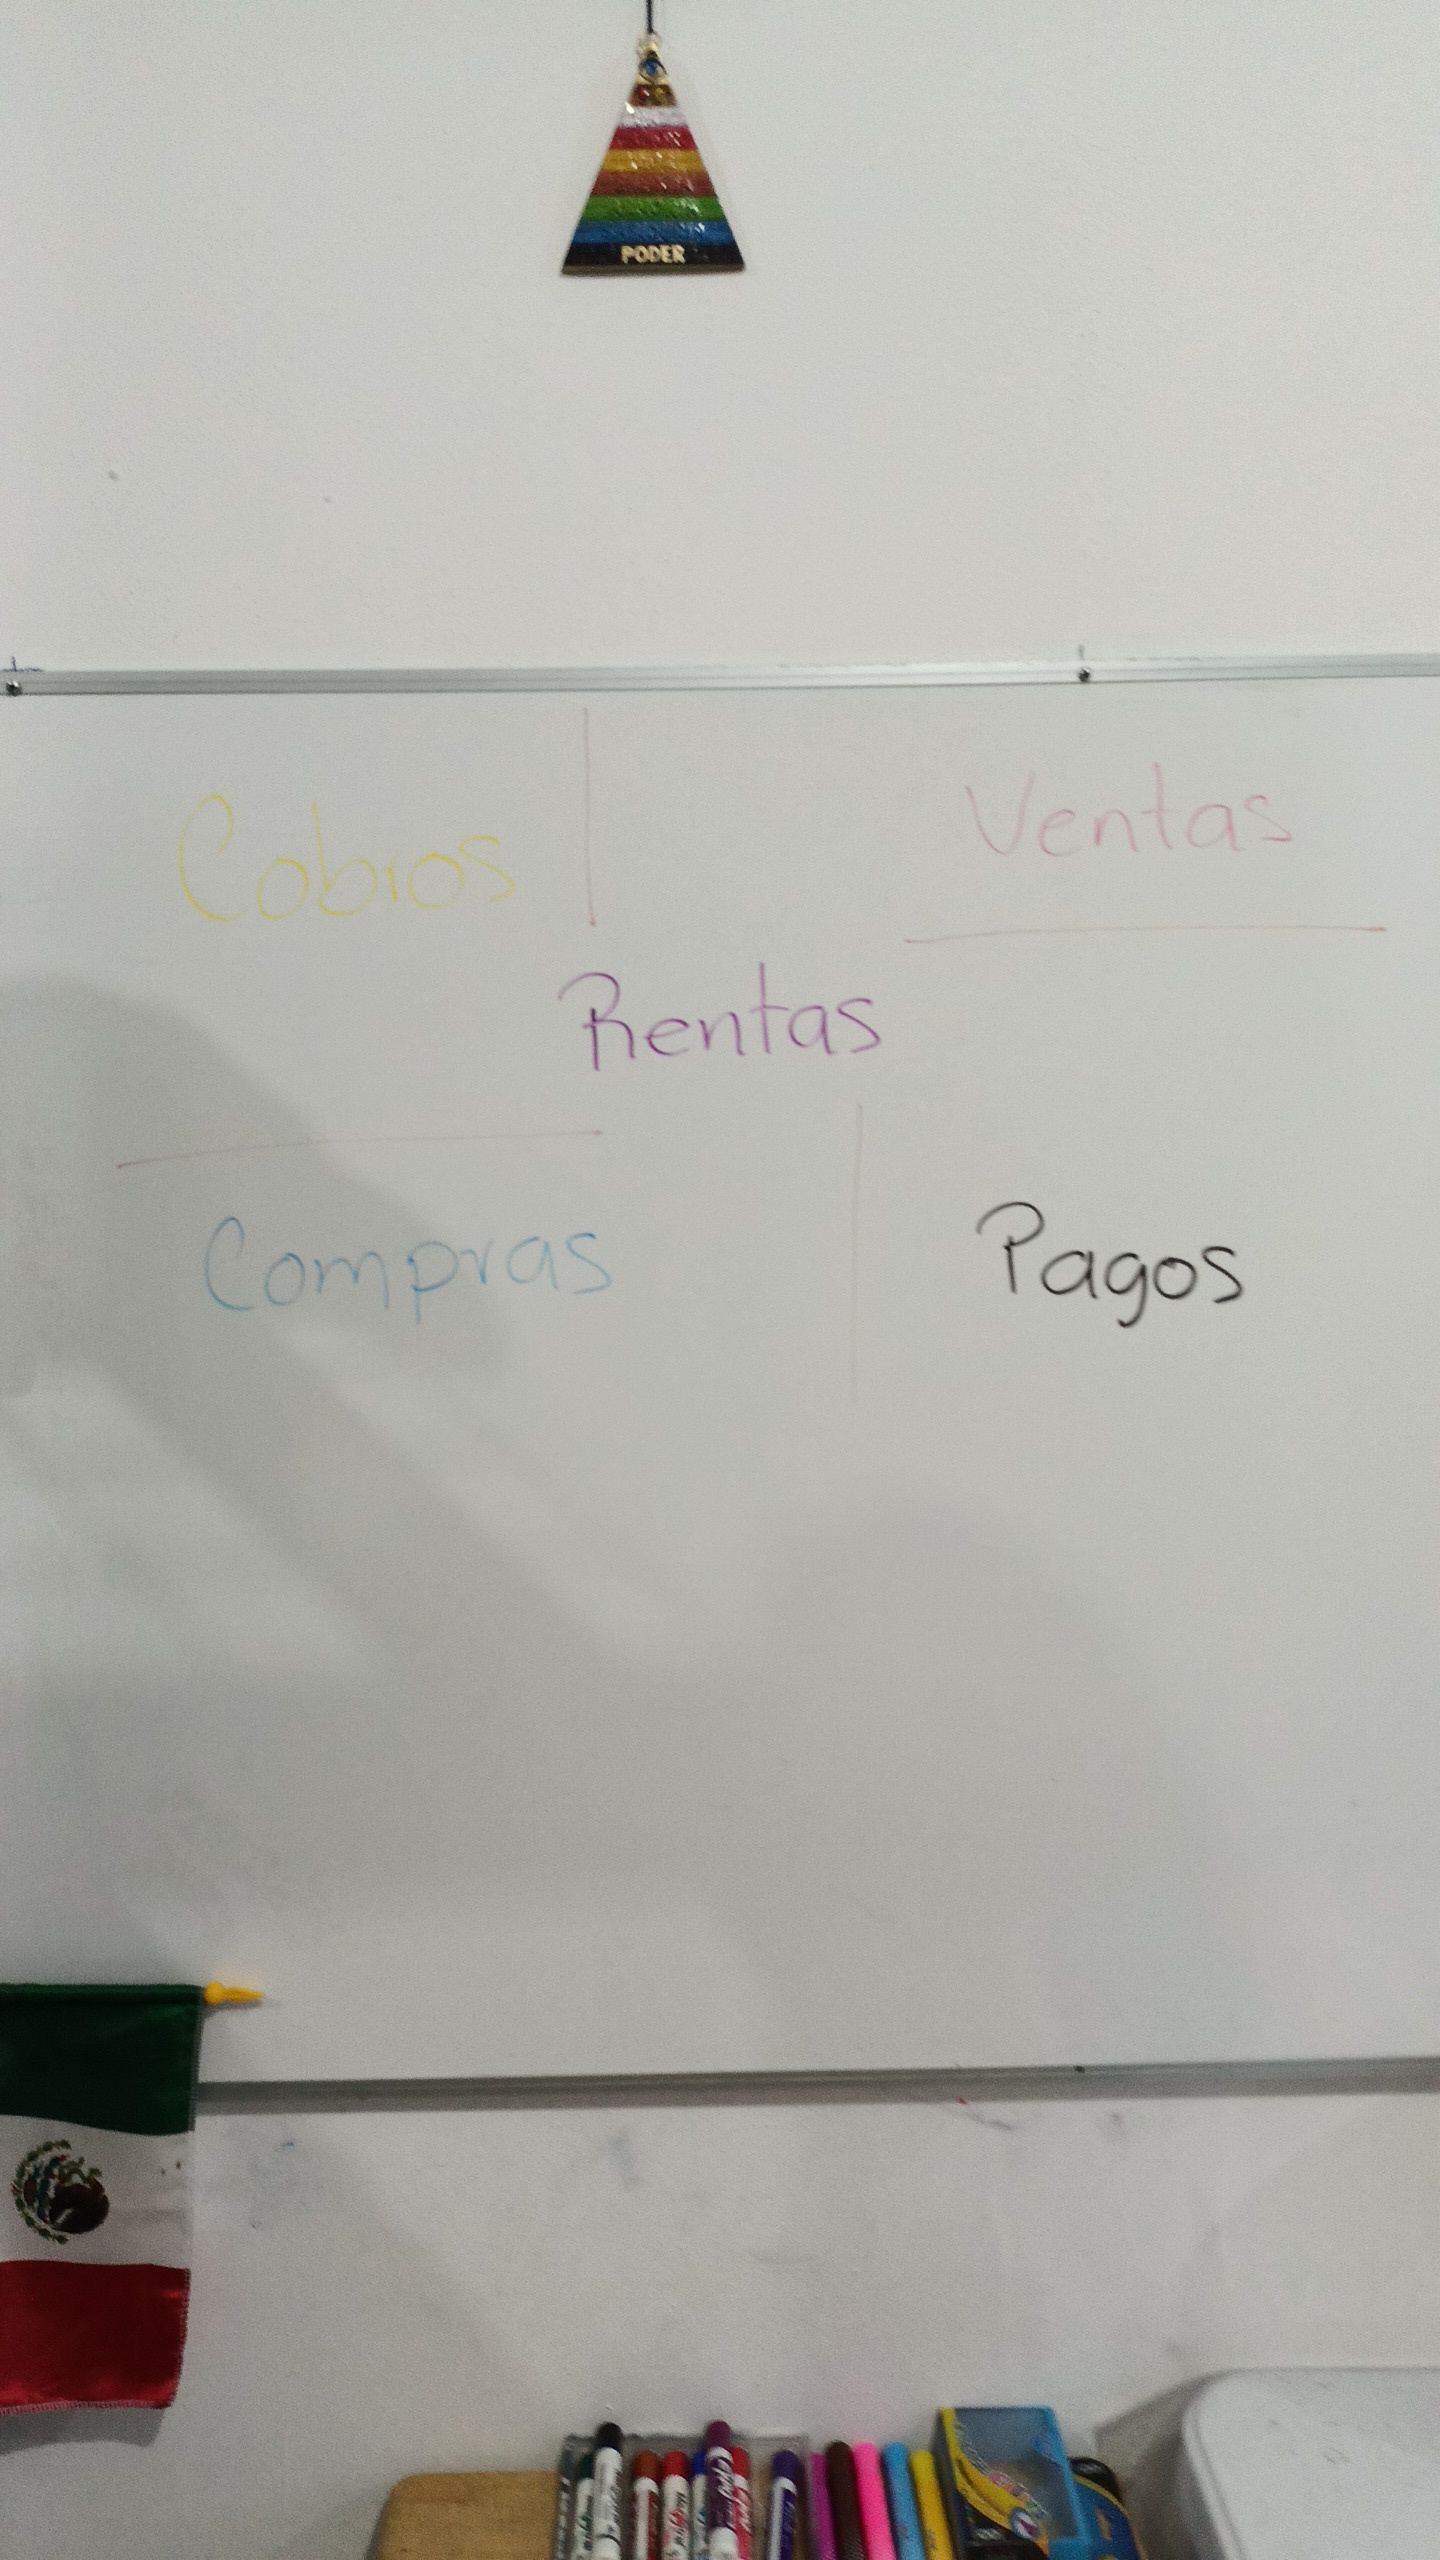 PODER
Cobros
Ventas
Rentas
Compras
Pagos